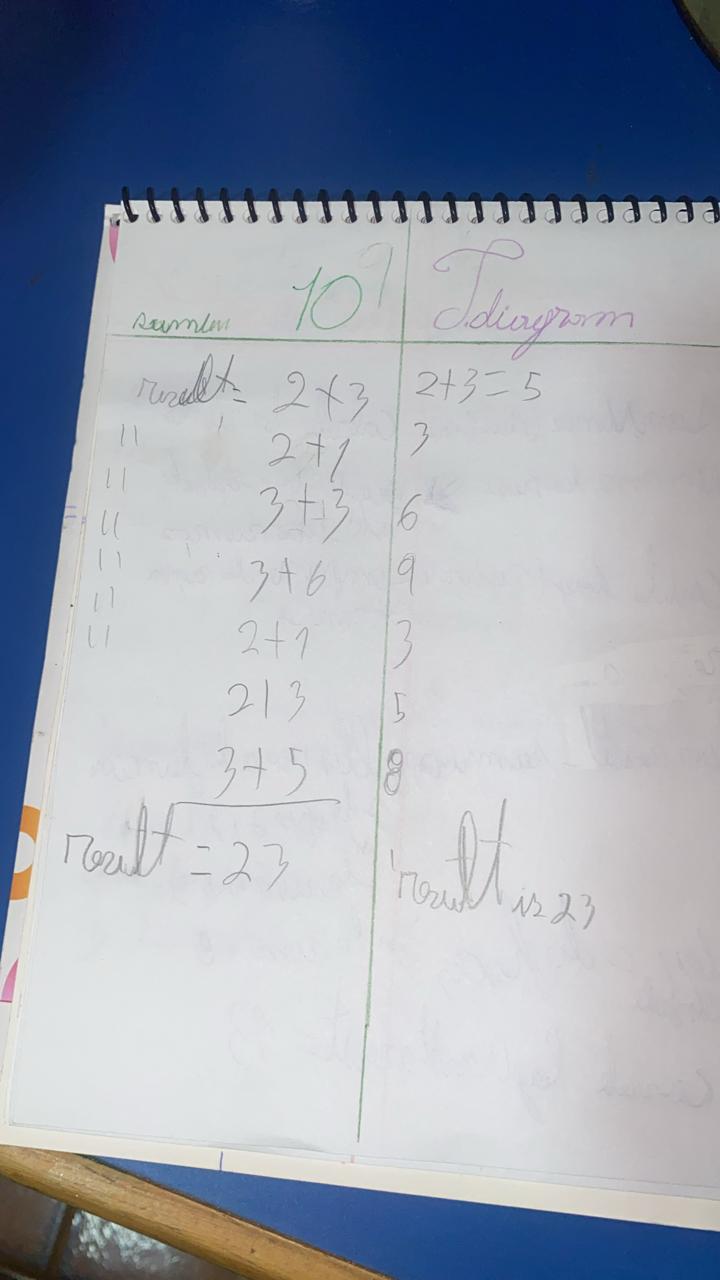 10 9 T diagram
result = 2+3 2+3=5
" 2+1 3
" 3+3 6
" 3+6 9
" 2+1 3
" 2|3 5
3+5 8
result = 23 result is 23